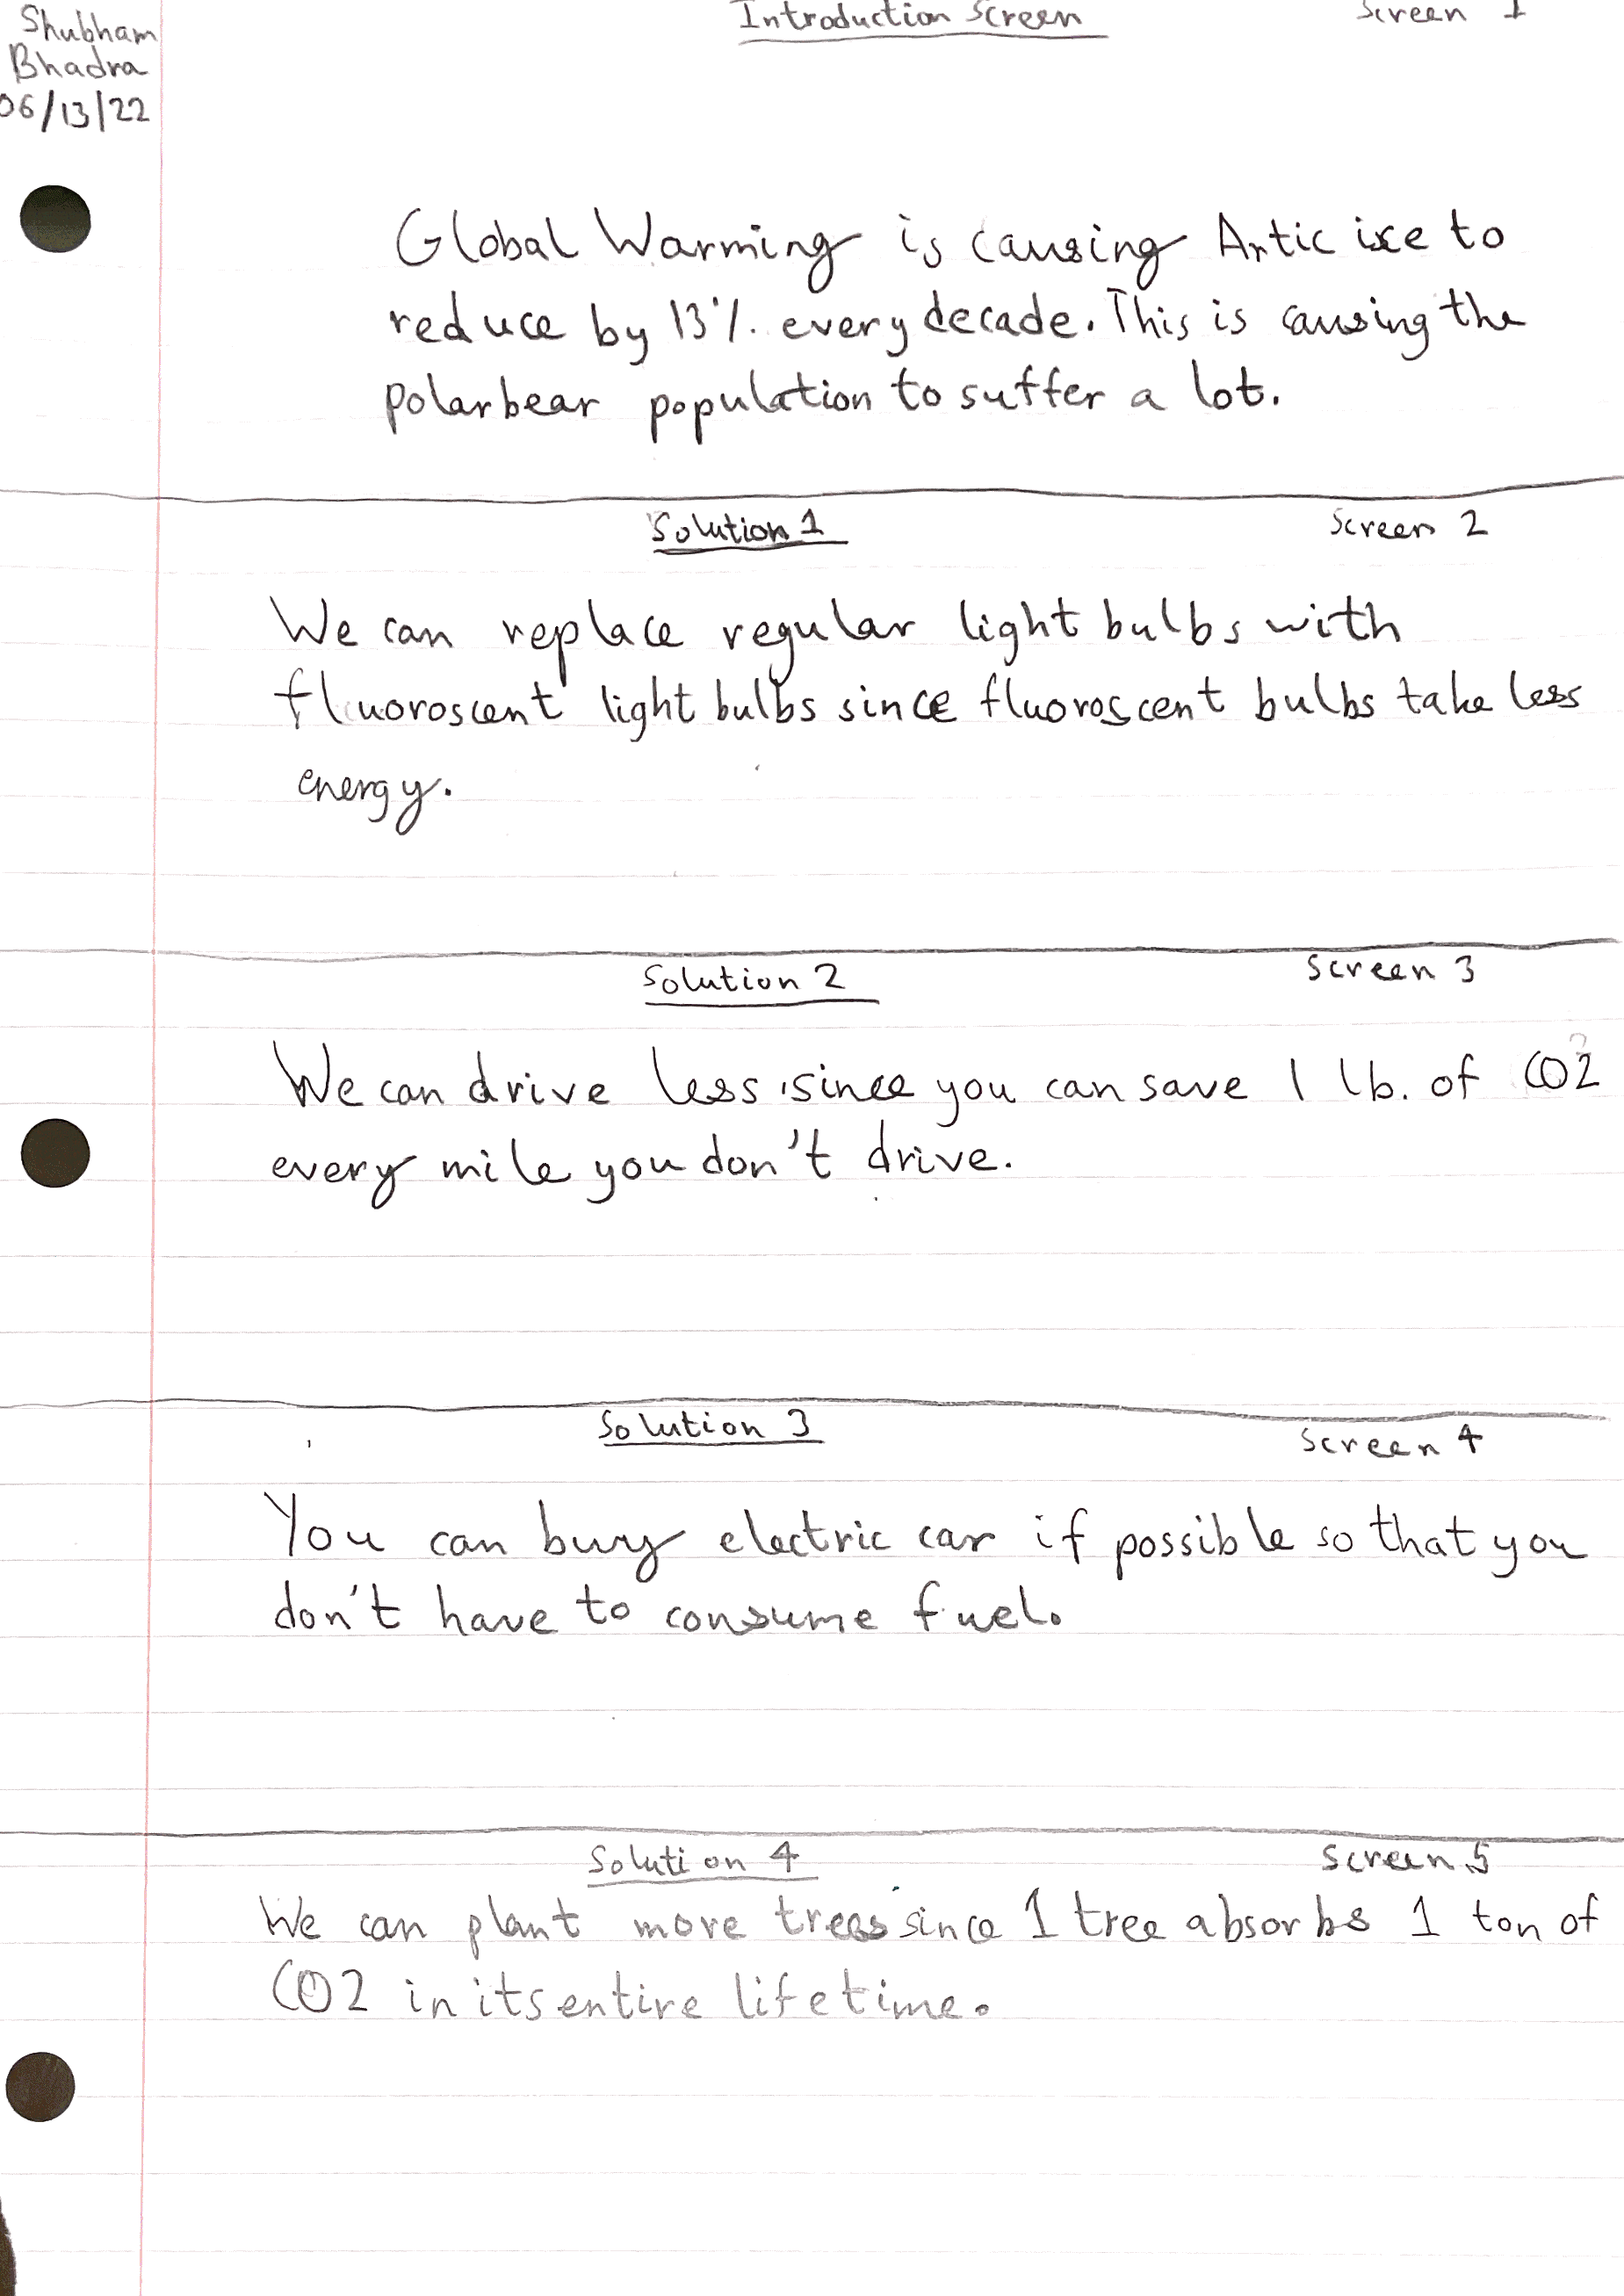 Shubham
Bhadra
06/13/22
Introduction Screen
Screen 1
Global Warming is causing Artic ice to
reduce by 13% every decade. This is causing the
polar bear population to suffer a lot.
Solution 1
Screen 2
We can replace regular light bulbs with
fluoroscent light bulbs since fluoroscent bulbs take less
energy.
Solution 2
Screen 3
We can drive less since you can save 1 lb. of CO2
every mile you don't drive.
Solution 3
Screen 4
You can buy electric car if possible so that you
don't have to consume fuel.
Solution 4
Screen 5
We can plant more trees since 1 tree absorbs 1 ton of
CO2 in its entire lifetime.